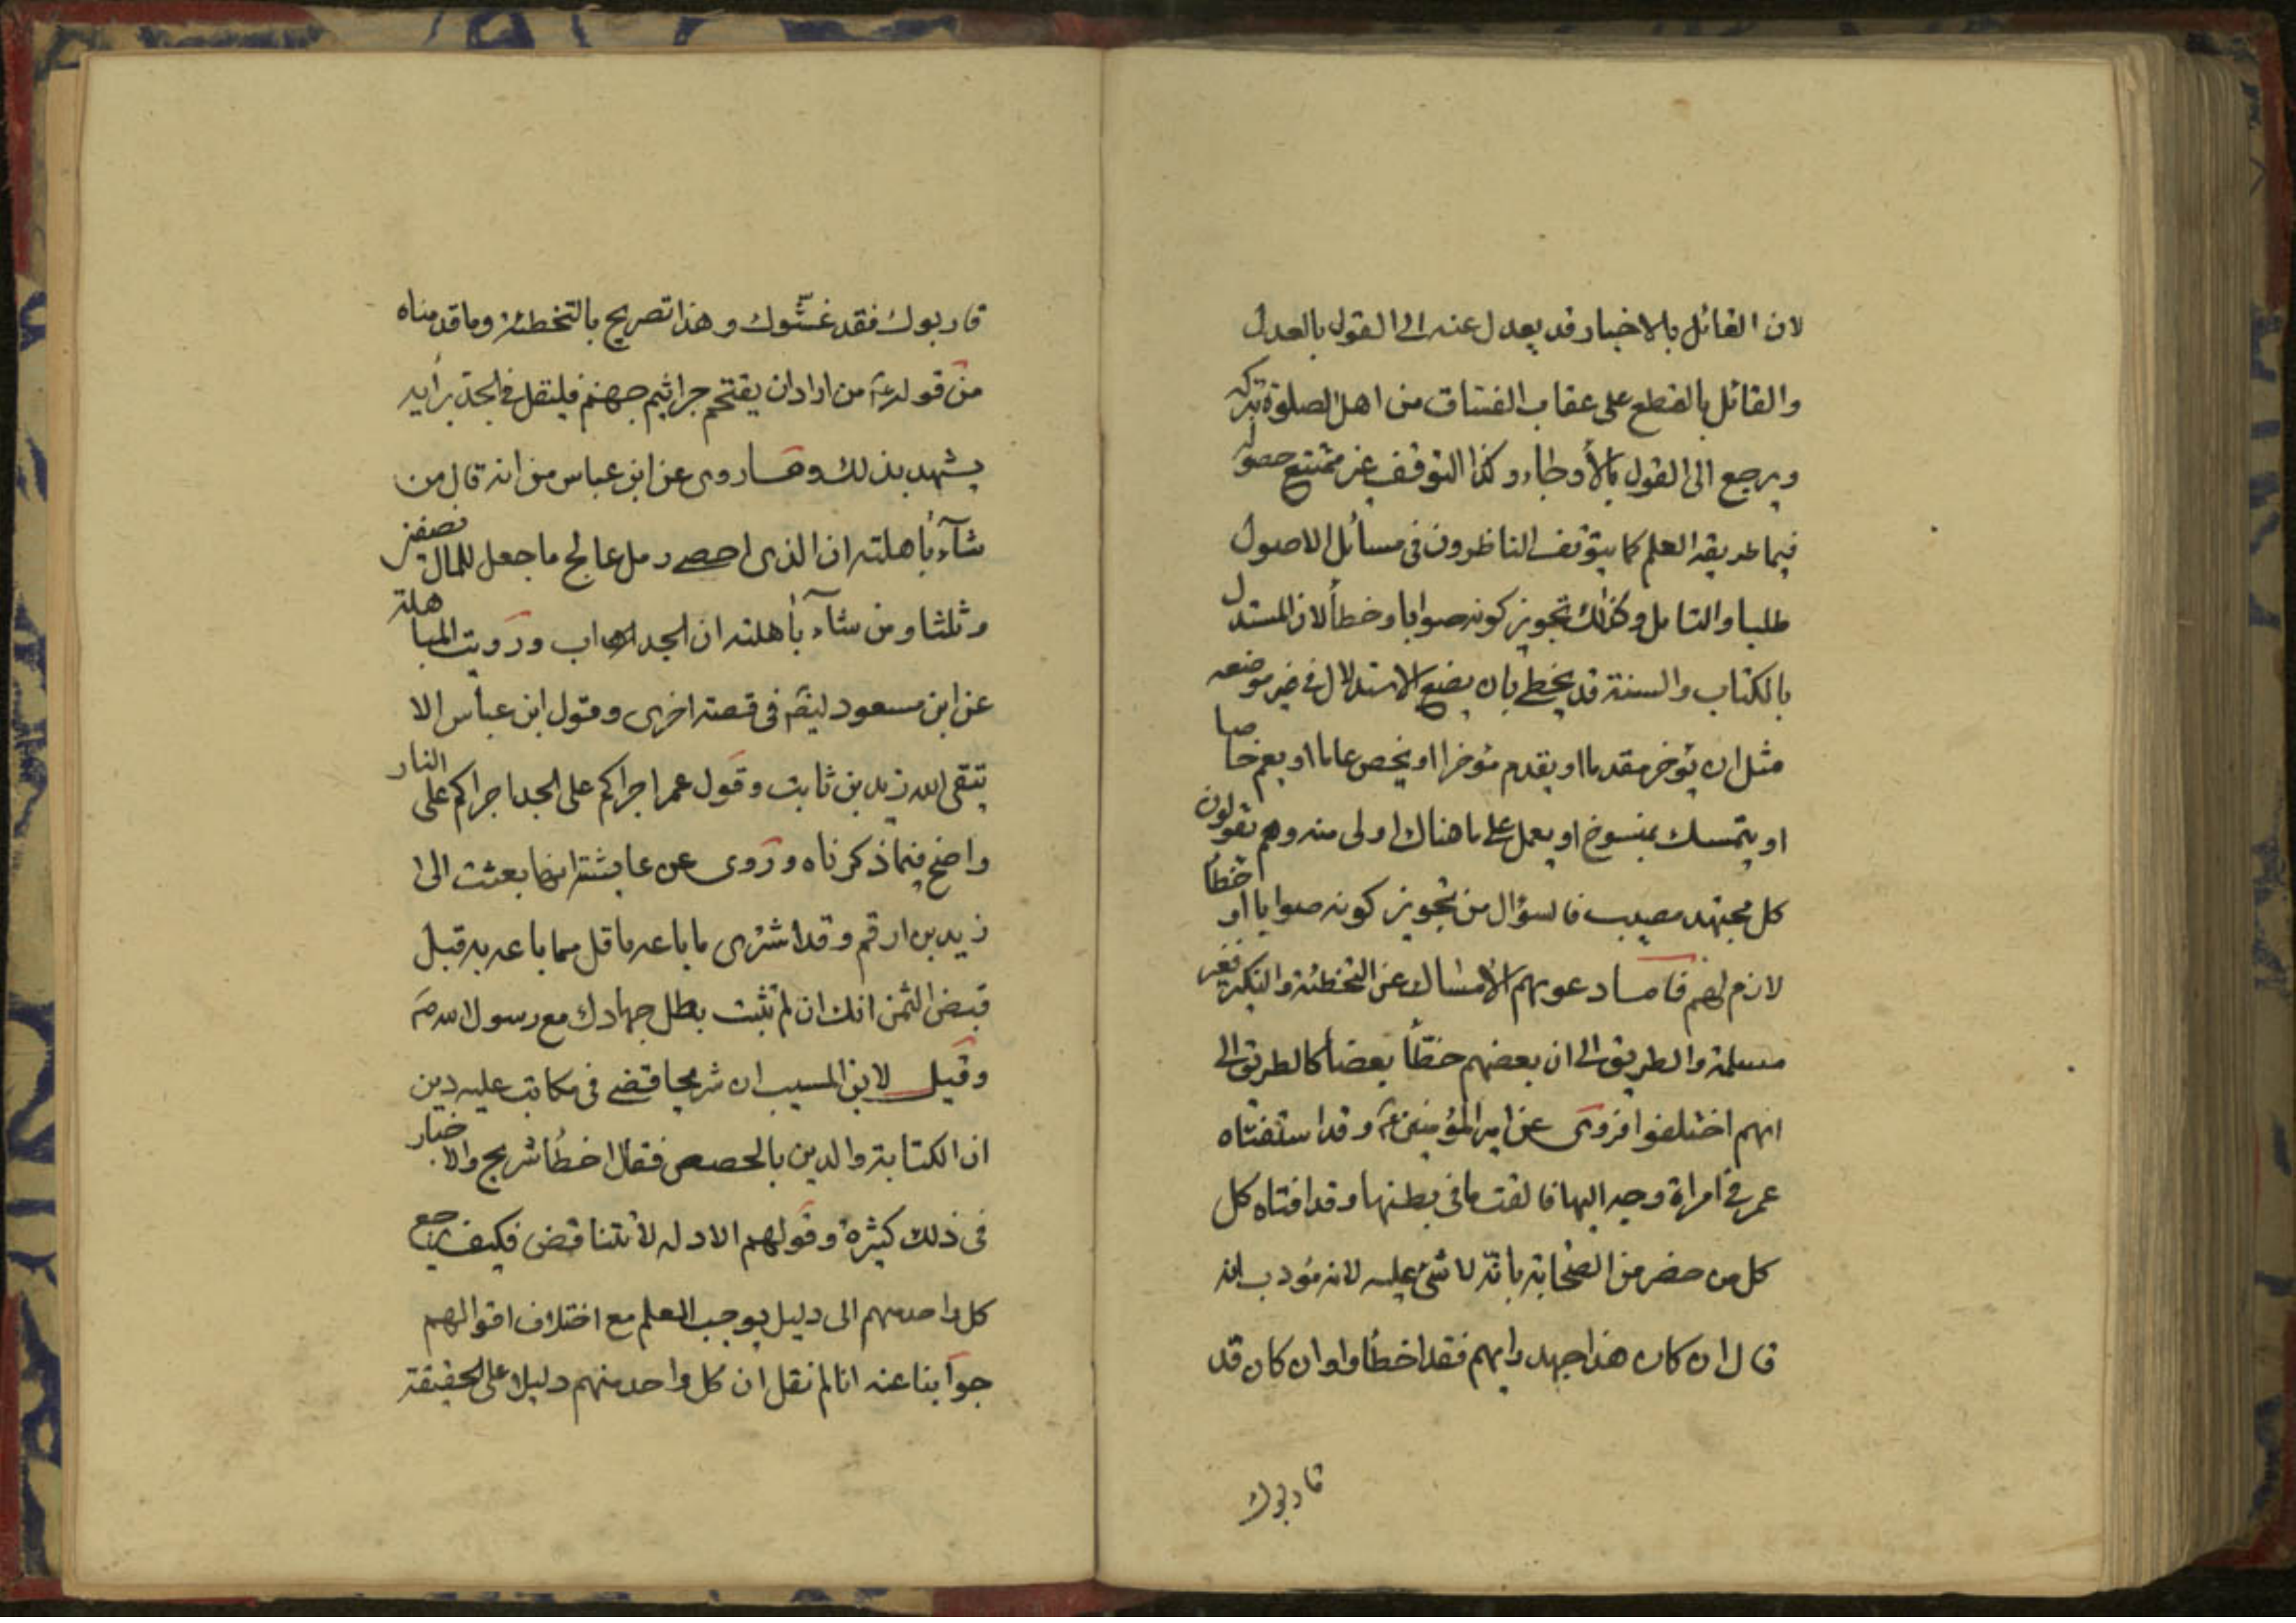 لان القائل بالاخبار قد يعدل عنه الى القول بالعدل
والقائل بالقطع على عقاب الفساق من اهل الصلوة تركه
ويرجع الى القول بالأرجاء وكذا التوقف غير ممتنع حصوله
فيما طريقه العلم كما يتوقف الناظرون فى مسائل الاصول
طلبا والتامل وكذلك تجويز كونه صوابا وخطأ لان المستدل
بالكتاب والسنة قد يخطئ بان يضع الاستدلال فى غير موضعه
مثل ان يؤخر مقدما او يقدم مؤخرا او يخص عاما او يعم خاصا
او يتمسك بمنسوخ او يعمل على ما هناك اولى منه وهم يقولون
كل مجتهد مصيب فالسؤال من تجويز كونه صوابا او خطأ
لازم لهم فاما دعويهم الامساك عن التخطئة والنكير فغير
مسلمة والطريق الى ان بعضهم خطأ بعضا كالطريق الى
انهم اختلفوا فروى عن امير المؤمنين ع وقد استفتاه
عمر فى امراة وجه اليها فالقت ما فى بطنها وقد افتاه كل
كل من حضر من الصحابة بانه لا شئ عليه لانه مؤدب انه
قال ان كان هذا جهد رايهم فقد اخطأوا وان كان قد
قاربوك
قاربوك فقد غشوك وهذا تصريح بالتخطئة وما قدمناه
من قوله ع من اراد ان يقتحم جراثيم جهنم فليقل فى الجد برأيه
يشهد بذلك ومما روى عن ابن عباس من انه قال من
شآء بأهلته ان الذى احصى رمل عالج ما جعل للمال نصفين
وثلثا ومن شآء بأهلته ان الجد اب ورويت المباهلة
عن ابن مسعود ايضا فى قصة اخرى وقول ابن عباس الا
يتقى الله زيد بن ثابت وقول عمر اجراكم على الجد اجراكم على النار
واضح فيما ذكرناه وروى عن عايشة انها بعثت الى
زيد بن ارقم وقد اشترى ما باعه باقل مما باعه به قبل
قبض الثمن انك ان لم تثبت بطل جهادك مع رسول الله ص
وقيل لابن المسيب ان شريحا قضى فى مكاتب عليه دين
ان الكتابة والدين بالحصص فقال اخطأ شريح والاخبار
فى ذلك كثيرة وقولهم الادله لا تتناقض فكيف يرجع
كل واحد منهم الى دليل يوجب العلم مع اختلاف اقوالهم
جوابنا عنه انا لم نقل ان كل واحد منهم دليلا على الحقيقة